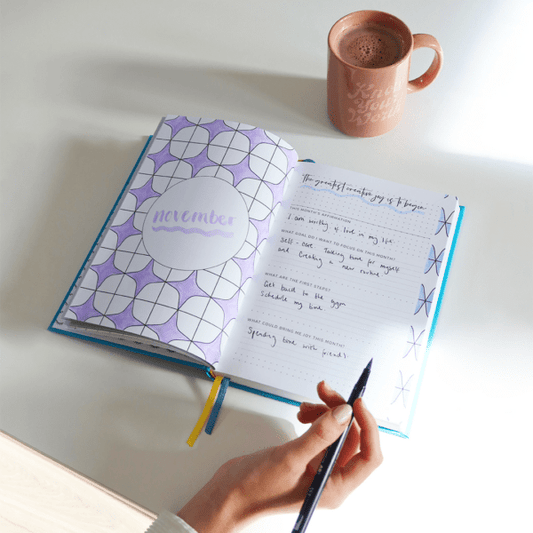 Know
Your
Worth
november
the greatest creative joy is to begin
THIS MONTH'S AFFIRMATION
I am worthy of love in my life
WHAT GOAL DO I WANT TO FOCUS ON THIS MONTH?
Self-care. Taking time for myself
and creating a new routine
WHAT ARE THE FIRST STEPS?
Get back to the gym
Schedule my time
WHAT COULD BRING ME JOY THIS MONTH?
Spending time with friends.